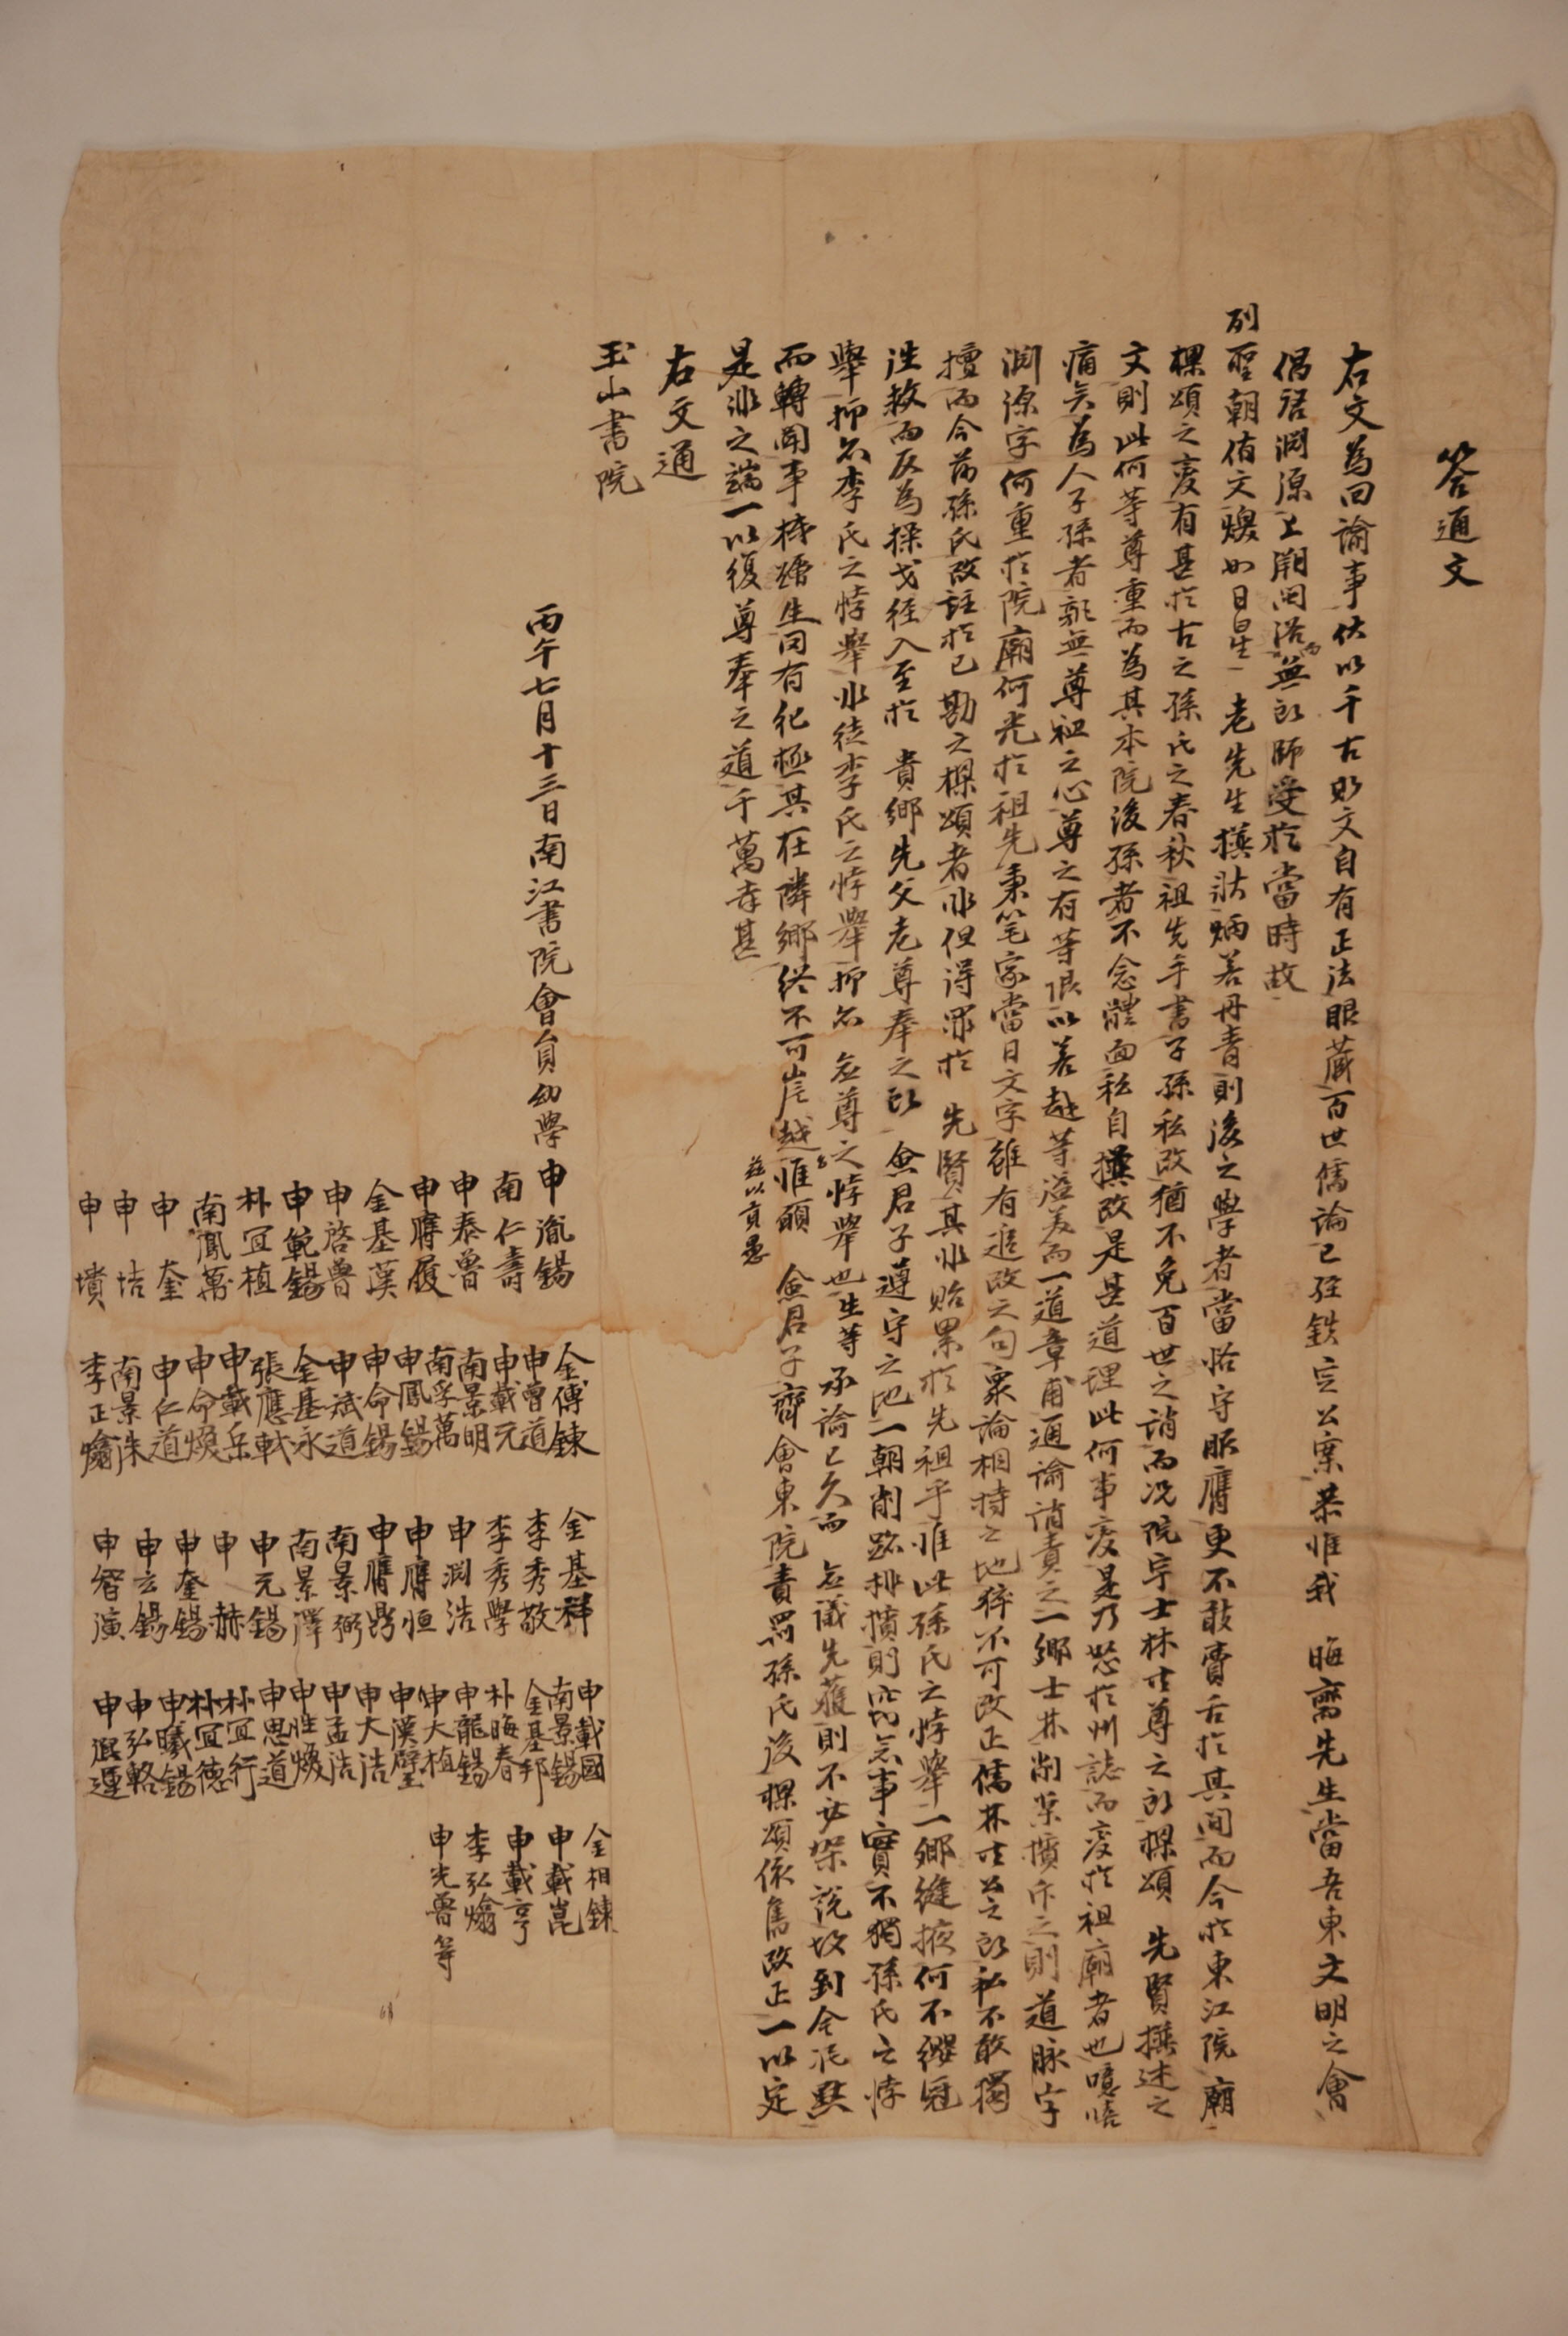 答通文
右文爲回諭事伏以千古斯文自有正法眼藏百世儒論已經鉄定公案恭惟我 晦齋先生當吾東文明之會
倡諸淵源上溯閩洛而無所師受於當時故
列聖朝侑文煥如日星 老先生撰狀炳若丹靑則後之學者當恪守服膺更不敢賣舌於其間而今於東江院廟
樑頌之變有甚於古之孫氏之春秋祖先手書子孫私改猶不免百世之誚而况院宇士林所尊之所樑頌 先賢撰述之
文則此何等尊重而爲其本院後孫者不念體面私自撰改是甚道理此何事變是乃怒於州誌而變於祖廟者也噫嘻
痛矣爲人子孫者孰無尊祖之心尊之有等限以若越等溢美而一道章甫通諭誚責之一鄕士林削案擯斥之則道脉字
淵源字何重於院廟何光於祖先秉筆家當日文字雖有追改之句衆論相持之地猝不可改正儒林所公之所私不敢獨
擅而今爲孫氏改註於已勘之樑頌者非但得罪於 先賢其非貽累於先祖乎惟此孫氏之悖擧一鄕縫掖何不纓冠
往救而反爲操戈徑入至於 貴鄕先父老尊奉之所 僉君子遵守之地一朝削跡排擯則此等事實不獨孫氏之悖
擧抑亦李氏之悖擧非徒李氏之悖擧抑亦 並尊之所悖擧也生等 承諭已久而 並議先蔑則不必架說故到今泯默
而轉聞事機層生罔有紀極其在隣鄕終不可岸越茲以貢愚惟願 僉君子齊會東院責罰孫氏後樑頌依舊改正一以定
是非之端一以復尊奉之道千萬幸甚
右文通
玉山書院
丙午七月十三日南江書院會員幼學申胤錫
南仁壽
申泰曾
申膺履
金基漢
申啓曾
申範錫
朴宜植
南鳳萬
申 奎
申 㙫
申 墳
金傅鍊
申曾道
申載元
南景明
南孚萬
申鳳錫
申命錫
申斌道
金基永
張應軾
申載岳
申命煥
申仁道
南景洙
李正爚
金基祥
李秀敬
李秀學
申淵浩
申膺恒
申膺鼎
南景弼
南景澤
申元錫
申 赫
申奎錫
申玄錫
申智濱
申載國
南景錫
金基邦
朴晦春
申龍錫
申大植
申漢璧
申大浩
申孟浩
申性煥
申思道
朴宜行
朴宜德
申曦錫
申弘輅
申漑運
金相鍊
申載崑
申載亨
李弘爚
申光魯等